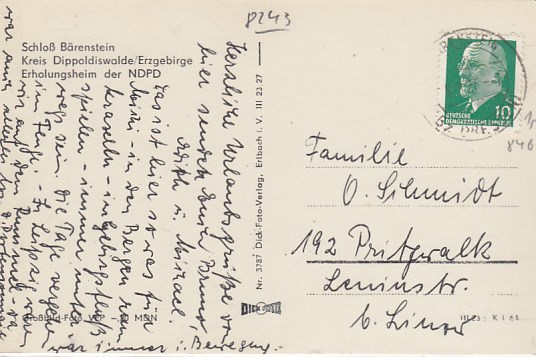 8243
Schloß Bärenstein
Kreis Dippoldiswalde/Erzgebirge
Erholungsheim der NDPD
Großbild-Foto VVP – 20 MDN
Herzliche Urlaubsgrüße von
hier senden Euch Bruno,
Edith u. Michael
Das ist hier so was für
Michi - in den Bergen rum
kraxeln - im Gebirgsfluß
spielen, immer unter-
wegs sein. Die Tage vergehen
im Fluge. - In Leipzig waren
wir auf dem
war immer i. Bewegung.
Nr. 3787 Dick-Foto-Verlag, Erlbach i. V. III 23 27
DICK FOTO
BÄRENSTEIN
10
DEUTSCHE
DEMOKRATISCHE REPUBLIK
846
Familie
O. Schmidt
192 Pritzwalk
Leninstr.
b. Linow
III 23 K 1 64